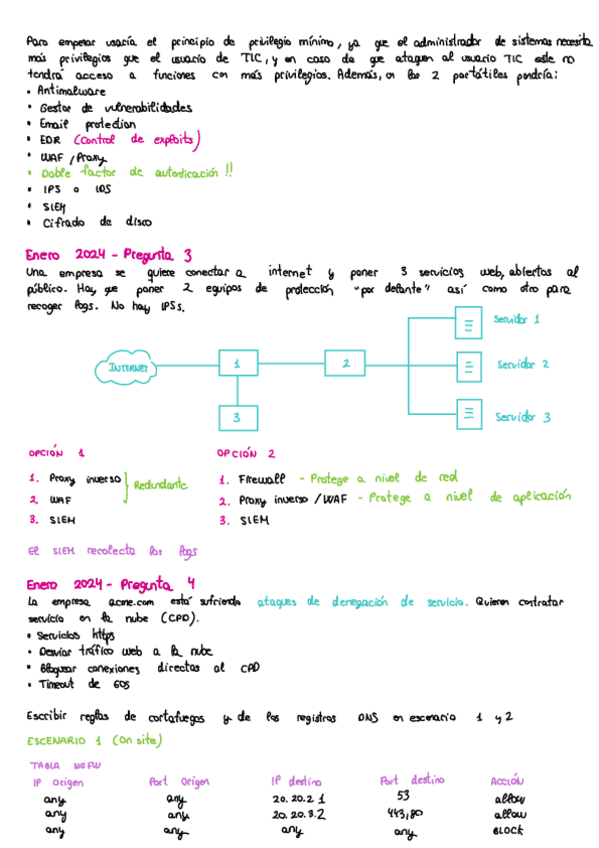 Para empezar usaría el principio de privilegio mínimo, ya que el administrador de sistemas necesita
más privilegios que el usuario de TIC, y en caso de que ataquen al usuario TIC este no
tendrá acceso a funciones con más privilegios. Además, en los 2 portátiles pondría:
• Antimalware
• Gestor de vulnerabilidades
• Email protection
• EDR (Control de exploits)
• WAF / Proxy
• Doble factor de autenticación !!
• IPS o IDS
• SIEM
• Cifrado de disco
Enero 2024 - Pregunta 3
Una empresa se quiere conectar a internet y poner 3 servicios web, abiertos al
público. Hay que poner 2 equipos de protección "por delante" así como otro para
recoger logs. No hay IPSs.
INTERNET
1
2
3
Servidor 1
Servidor 2
Servidor 3
OPCIÓN 1
1. Proxy inverso
2. WAF
Redundante
3. SIEM
OPCIÓN 2
1. Firewall - Protege a nivel de red
2. Proxy inverso / WAF - Protege a nivel de aplicación
3. SIEM
El SIEM recolecta los logs
Enero 2024 - Pregunta 4
La empresa acme.com está sufriendo ataques de denegación de servicio. Quieren contratar
servicio en la nube (CPD).
• Servicios https
• Desviar tráfico web a la nube
• Bloquear conexiones directas al CPD
• Timeout de 60s
Escribir reglas de cortafuegos y de los registros DNS en escenario 1 y 2
ESCENARIO 1 (On site)
TABLA NGFW
IP Origen Port Origen IP destino Port destino Acción
any any 20.20.2.1 53 allow
any any 20.20.3.2 443,80 allow
any any any any BLOCK